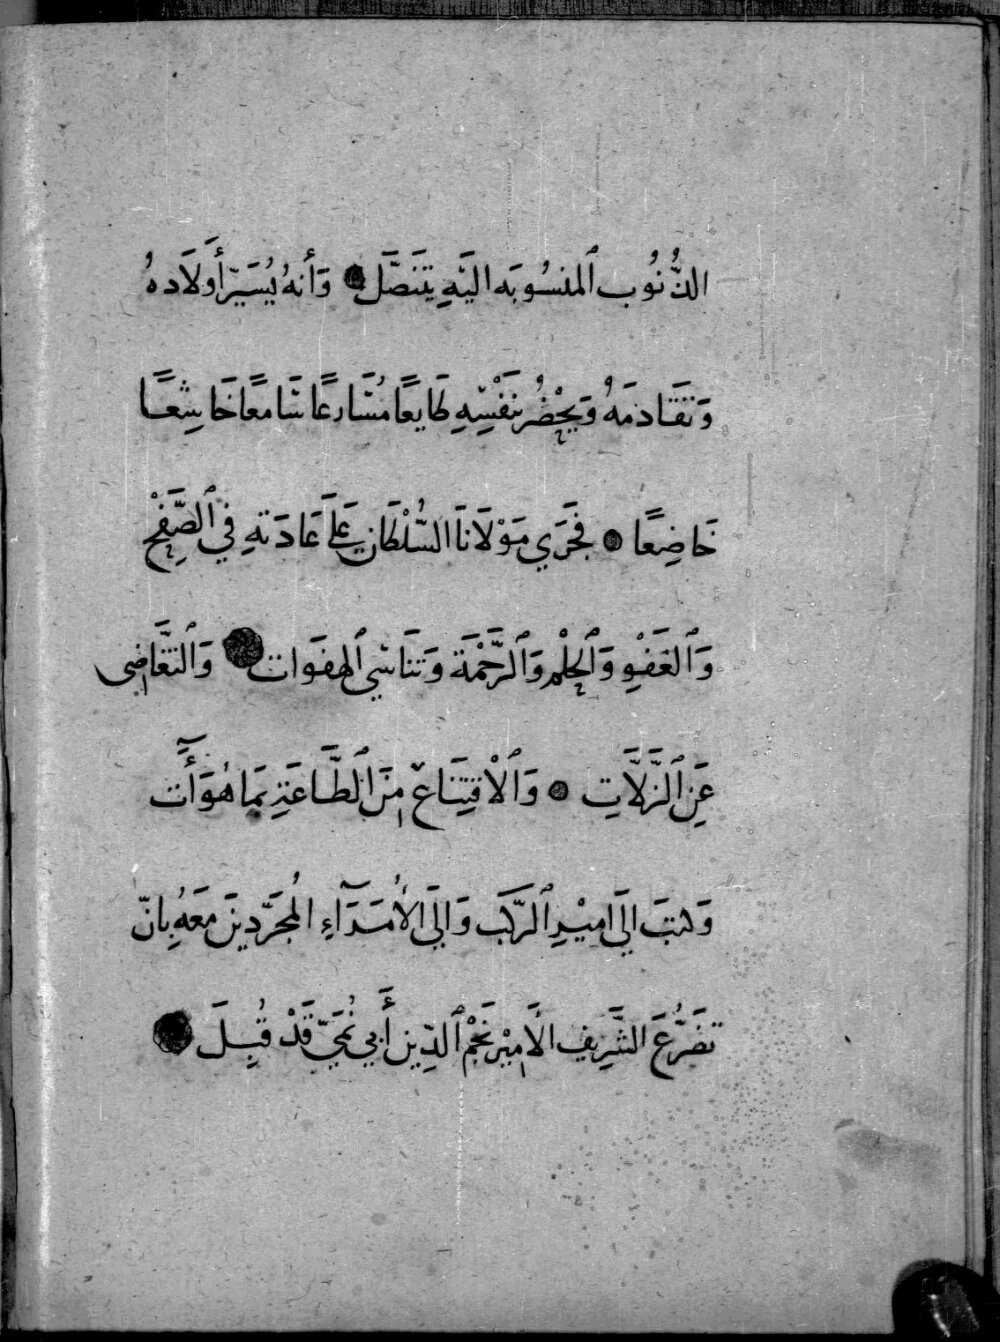 الذُّنُوب ٱلمنسُوبَه اليَهِ يَتَنَصَّل ● وَأنهُ يُسَيّر أَولَاده ُ
وَتقَادمَهُ وَيَحْضُر بنَفْسِهِ طَايعًا مسَُارعًا سَامعًا خَاشِعًا
خَاضِعًا ● فجَرَي مَوْلَانَا السُّلْطَان عَلَى عَادَتهِ فِي ٱلصَّفْحِ
وَٱلعَفْوِ وَٱلحِلْم وَٱلرَّحْمَة وَتنَاسي ٱلهفَوات ● وَٱلتغَّاضِى
عَنِ ٱلزَّلَّاتِ ● وَٱلْاقتِنَاع مِنَ ٱلطَّاعَةِ بمَا هُوَ أَت
وَكتبَ الَي امِيْرِ ٱلرَّكبَ وَالَي الأُمَرَآءِ المُجَرَّدِينَ معَهُ بِانّ
تضَرُّعَ الشَّرِيفِ الأَمِيْر نَجْم ٱلدِّين أَبي نُمَيّ قَدْ قُبِلَ ●